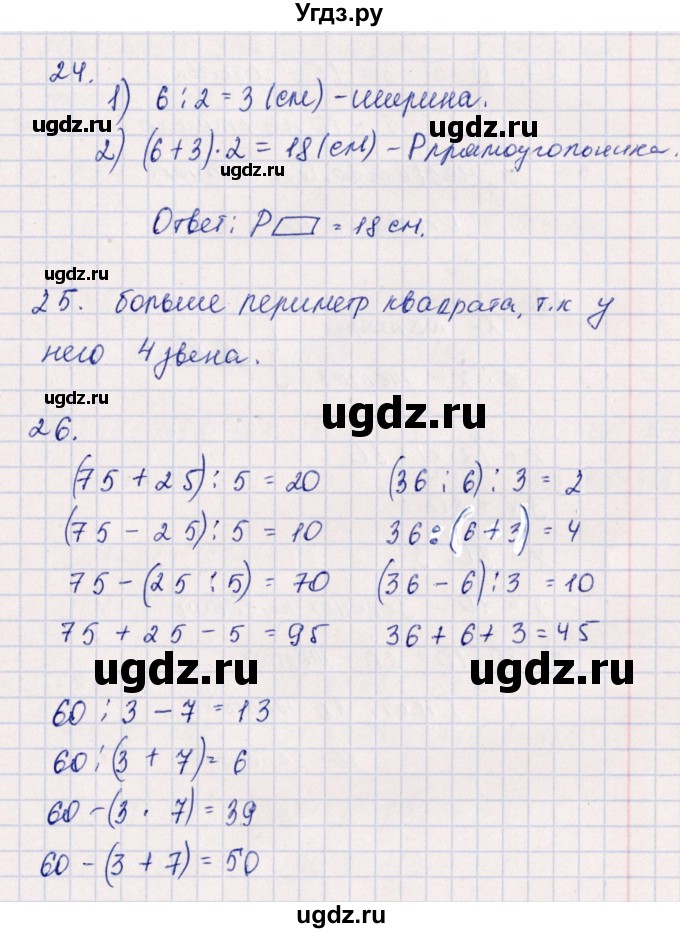 Угдз.ру
24.
1) 6 : 2 = 3 (см) - ширина.
ugdz.ru
2) (6 + 3) · 2 = 18 (см) - Pпрямоугольника.
ugdz.ru
Ответ: P▱ = 18 см.
ugdz.ru
25. больше периметр квадрата, т.к у
него 4 звена.
ugdz.ru
ugdz.ru
26.
(75 + 25) : 5 = 20 (36 : 6) : 3 = 2
(75 - 25) : 5 = 10 36 : (6 + 3) = 4
75 - (25 : 5) = 70 (36 - 6) : 3 = 10
75 + 25 - 5 = 95 36 + 6 + 3 = 45
ugdz.ru ugdz.ru
60 : 3 - 7 = 13
60 : (3 + 7) = 6
60 - (3 · 7) = 39
60 - (3 + 7) = 50
ugdz.ru